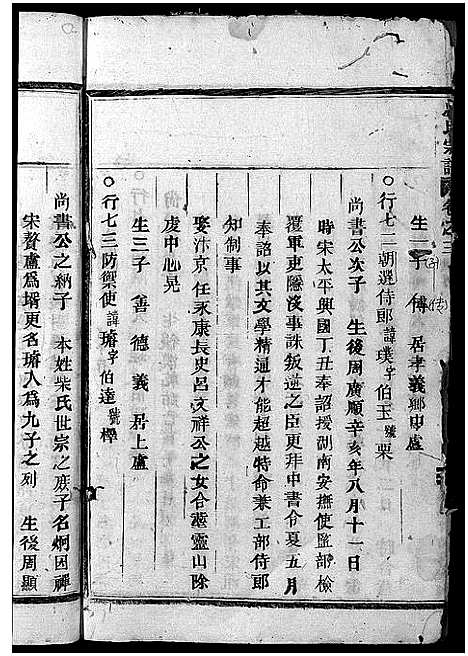 生二子 傅 居孝義鄉中盧
○行七二朝選侍郎諱璞字伯玉號栗
尚書公次子 生後周廣順辛亥年八月十一日
時宋太平興國丁丑奉詔授湖南安撫使監部檢
覆軍吏隱沒事誅叛逆之臣更拜中書令夏五月
奉詔以其文學精通才能超越特命兼工部侍郎
知制事
娶汴京 任永康長史呂文祥公之女合葬靈山除
虔中心晃
生三子 善 德 義 居上盧
○行七三防禦使諱璿字伯達號櫸
尚書公之納子 本姓柴氏世宗之庶子名炯因禪
宋贅盧爲壻更名璿人爲九子之列 生後周顯